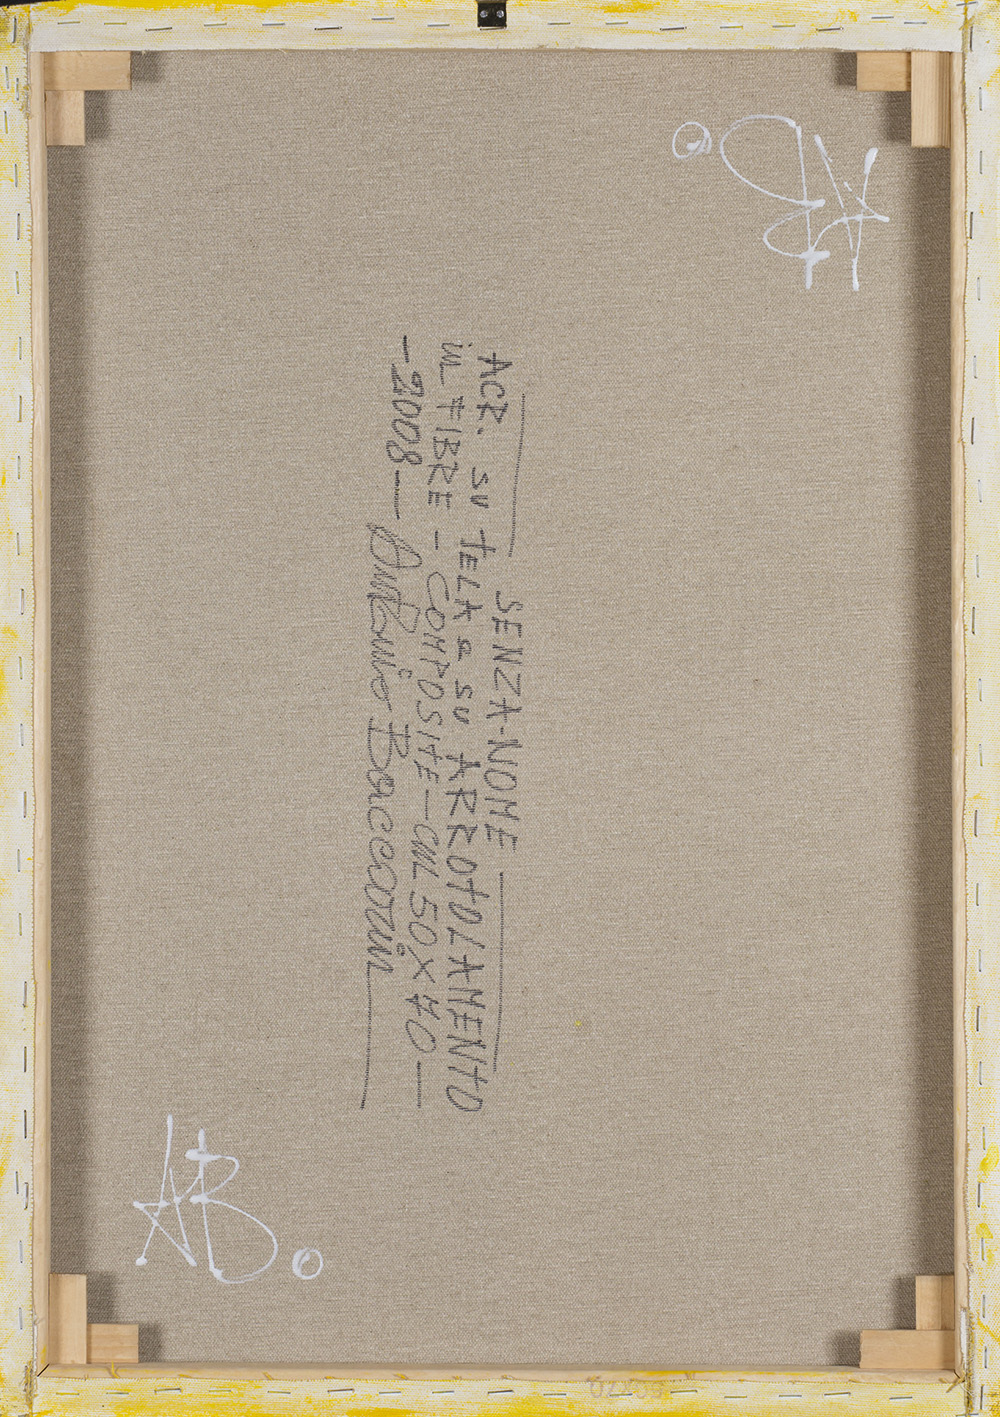 AB.
— SENZA-NOME —
ACR. su TELA e su ARROTOLAMENTO
in FIBRE - COMPOSITE — cm 50X70 —
- 2008 — Antonio Baccarin
AB.
50X70